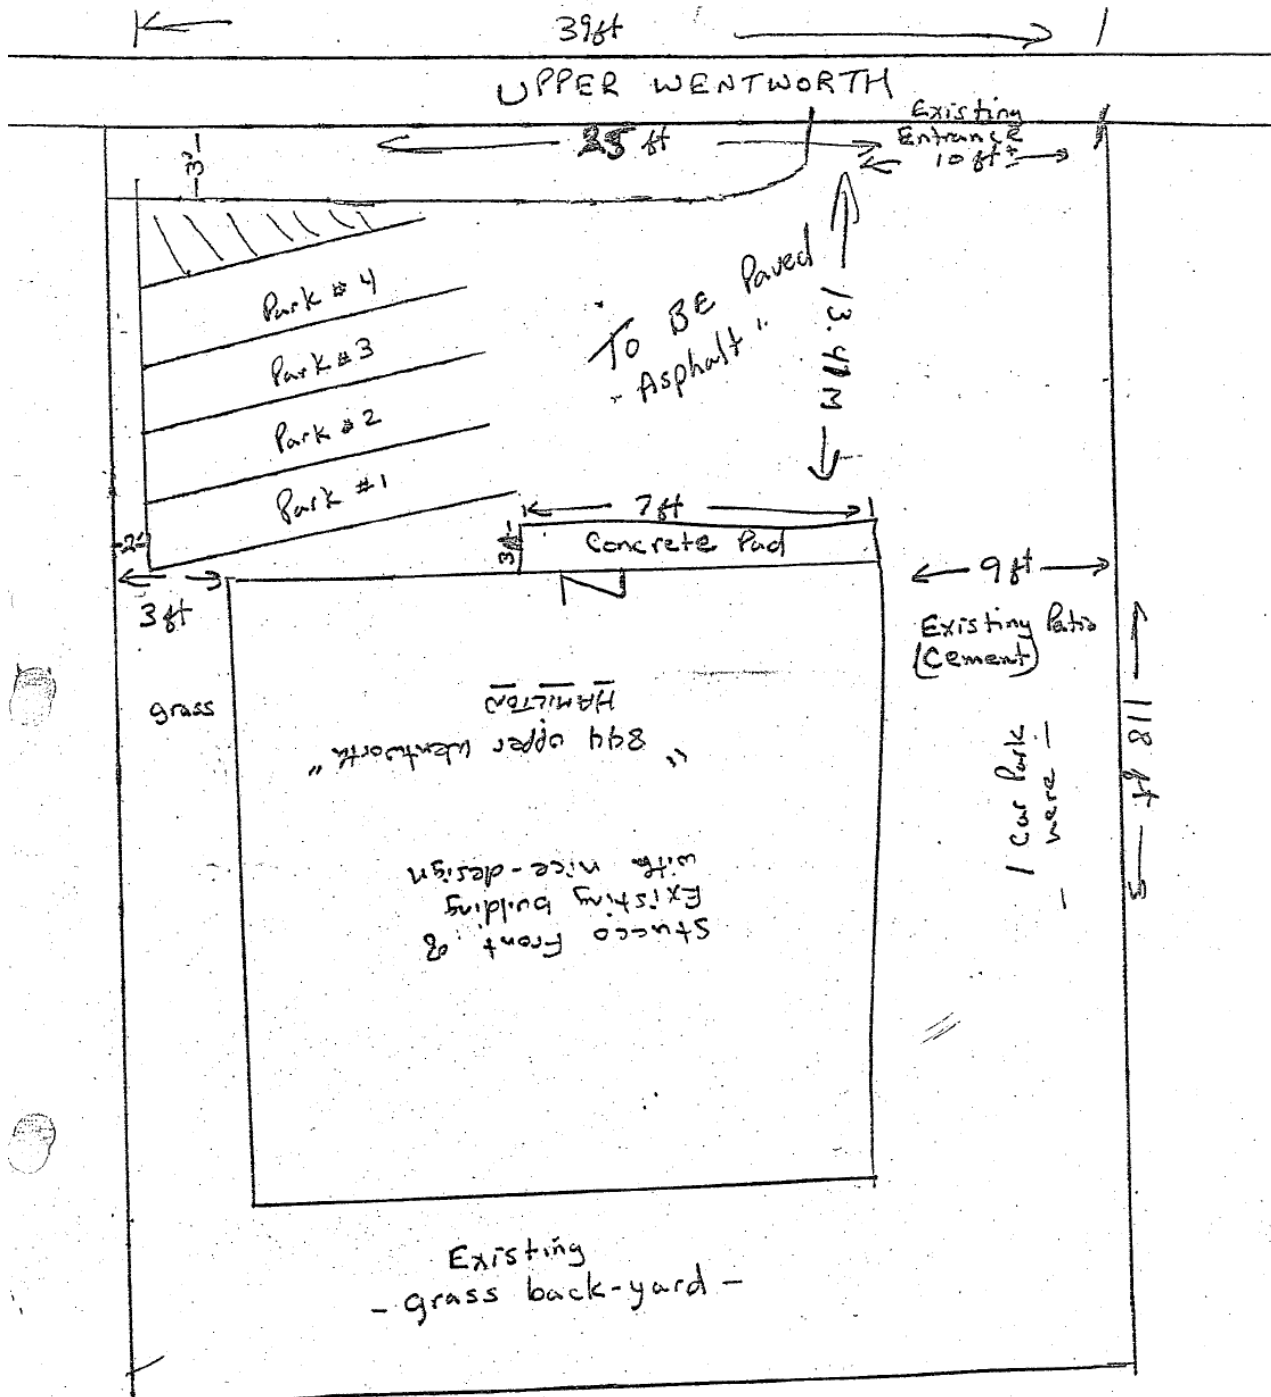 39ft
UPPER WENTWORTH
Existing
Entrance
10 ft ±
25 ft
3'
Park # 4
Park # 3
Park # 2
Park # 1
To BE Paved
"Asphalt"
13.41 M
7 ft
3 ft
Concrete Pad
2'
3 ft
9 ft
Existing Patio
(Cement)
grass
118 ft
1 Car Park
- here -
Stucco Front of
Existing building
with nice-design
" 844 upper Wentworth "
HAMILTON
Existing
- grass back-yard -